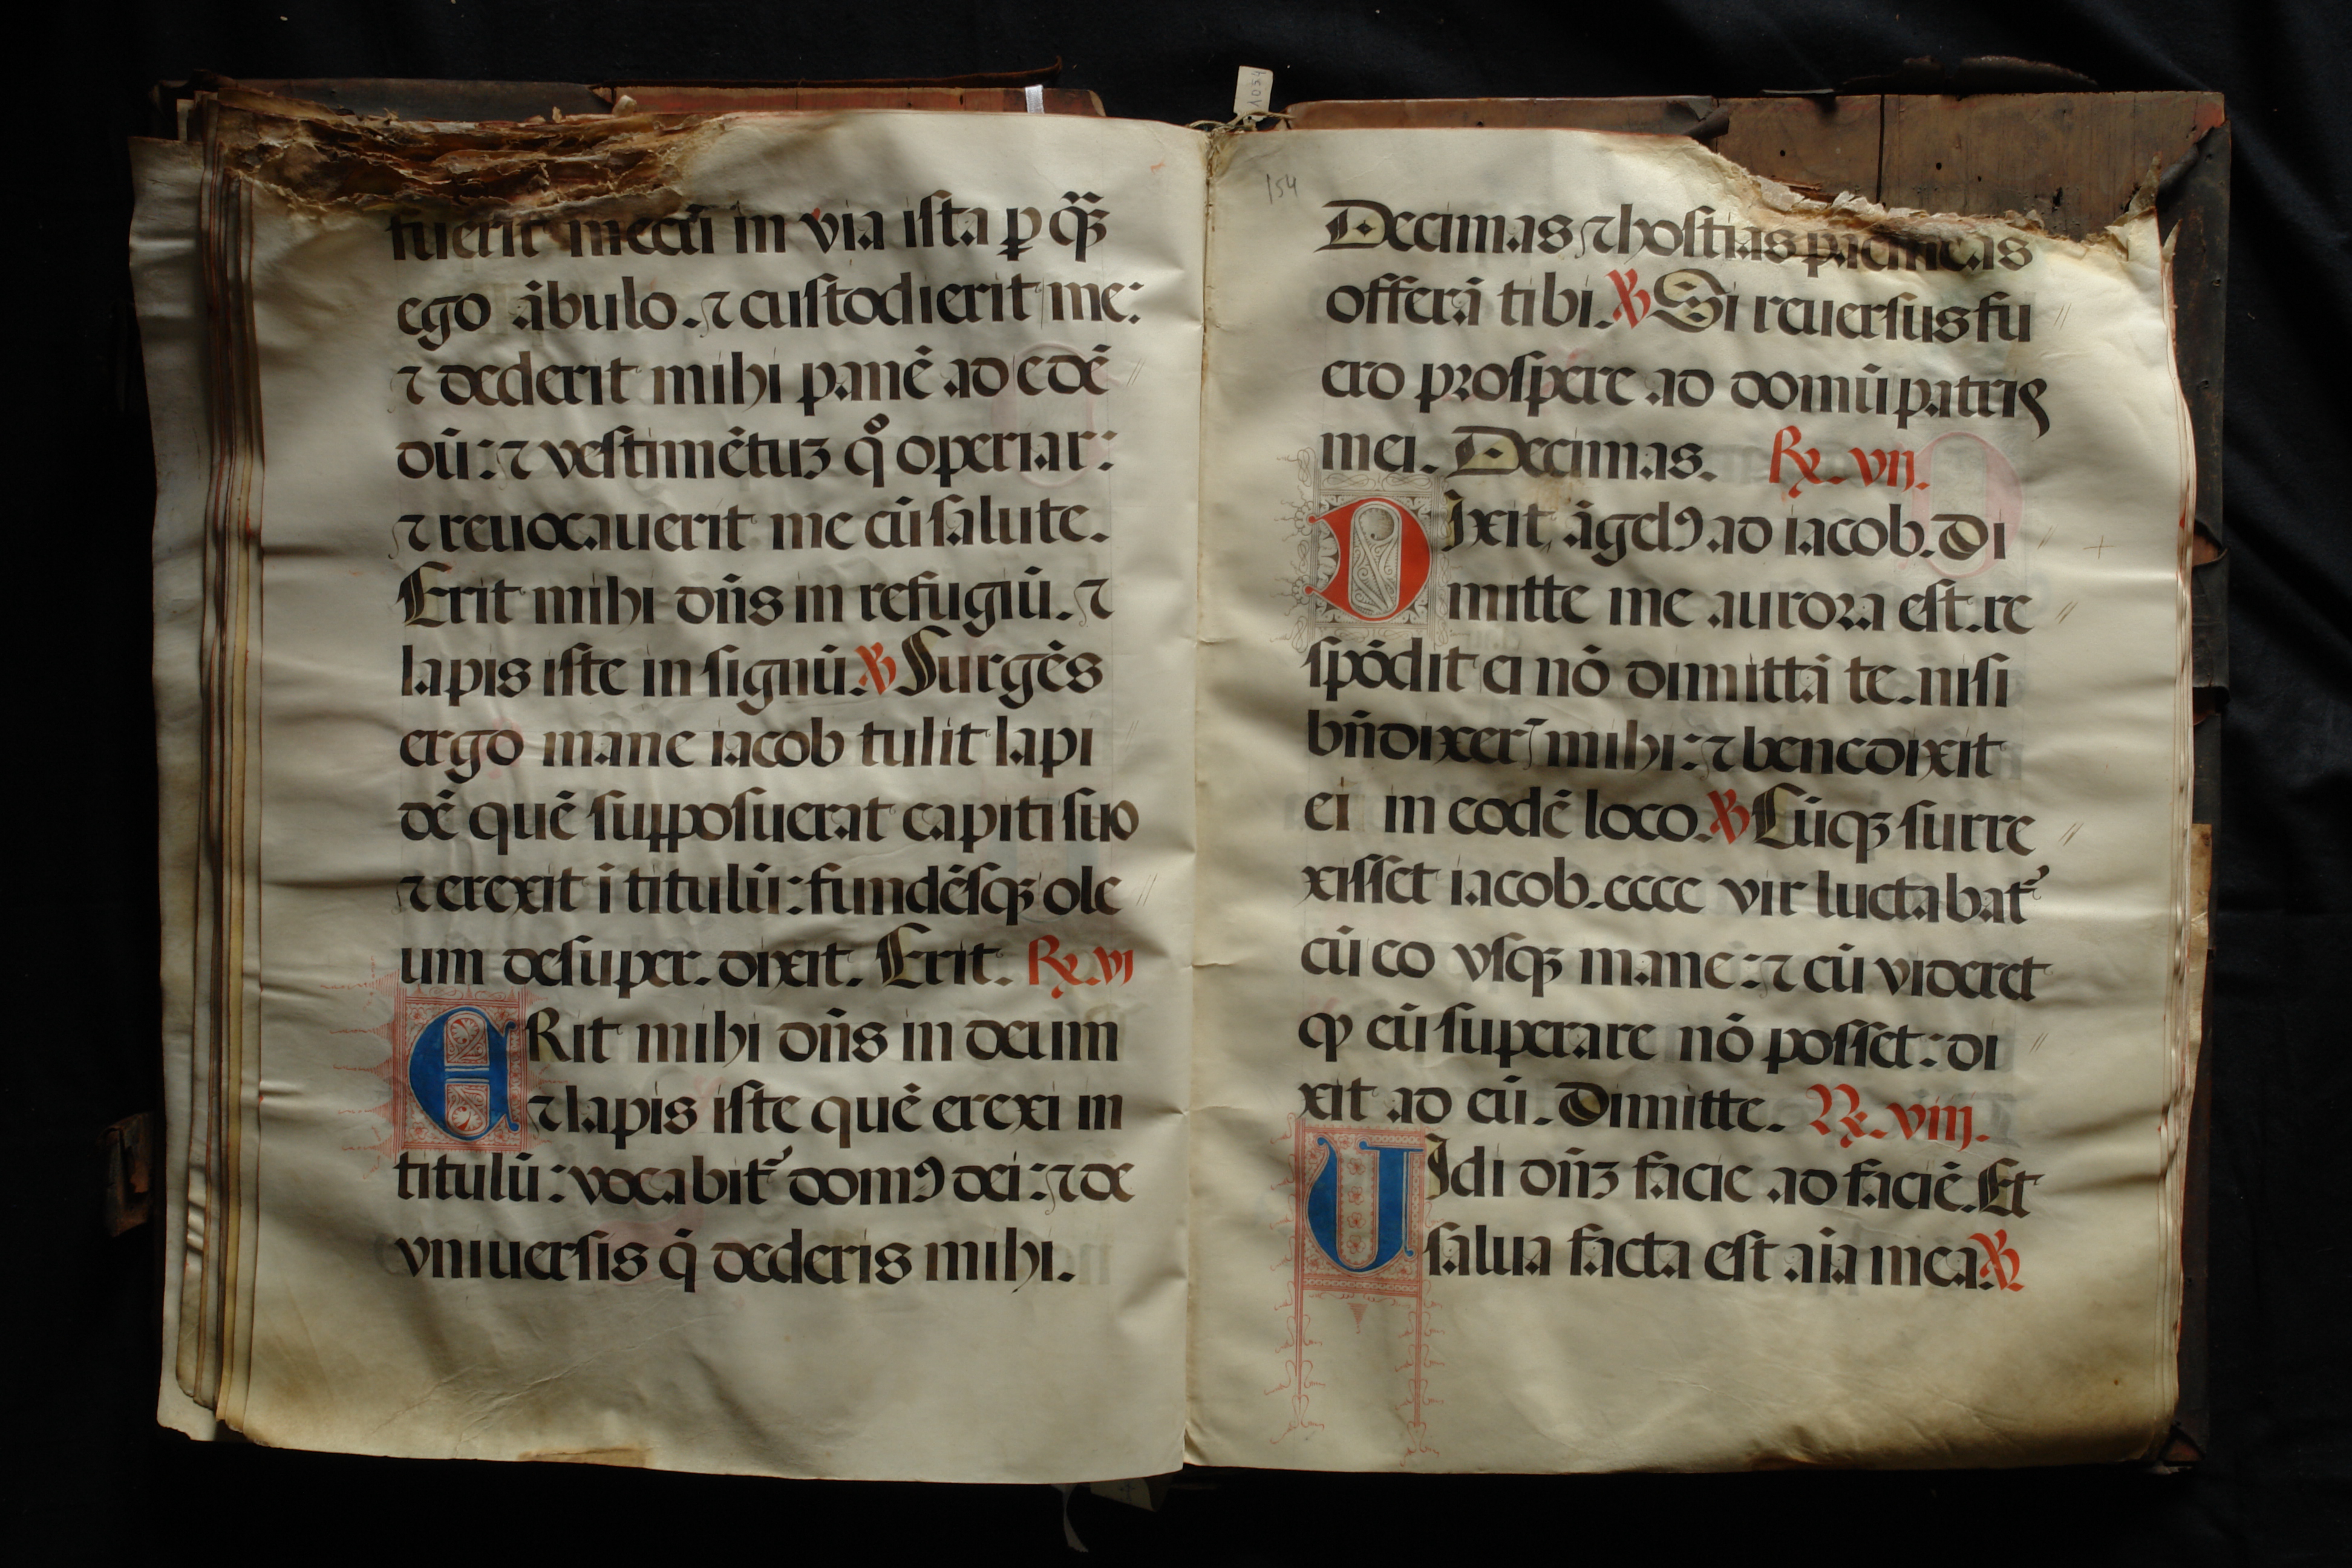 fuerit mecū in via iſta ꝑ qᷓꝫ
ego ābulo. ⁊ cuſtodierit me:
⁊ dederit mihi panē ad edē
dū: ⁊ veſtimētuꝫ qͦ operiar:
⁊ reuocauerit me cū ſalute.
Erit mihi dn̄s in refugiū. ⁊
lapis iſte in ſignū. ℣ Surgēs
ergo mane iacob tulit lapi
dē quē ſuppoſuerat capiti ſuo
⁊ erexit ī titulū: fundēſqꝫ ole
um deſuper. dixit. Erit. ℞. vi
ERit mihi dn̄s in deum
⁊ lapis iſte quē erexi in
titulū: vocabit᷑ domꝰ dei: ⁊ de
vniuerſis q̄ dederis mihi.
154
Decimas ⁊ hoſtias pacificas
offerā tibi. ℣ Si reuerſus fu
ero proſpere ad domū patris
mei. Decimas. ℞. vij.
DIxit āgelꝰ ad iacob. Di
mitte me aurora eſt. re
ſpōdit ei nō dimittā te. niſi
bn̄dixer᷑ mihi: ⁊ benedixit
ei in eodē loco. ℣ Cūqꝫ ſurre
xiſſet iacob. ecce vir luctabat᷑
cū eo vſqꝫ mane: ⁊ cū videret
ꝙ eū ſuperare nō poſſet: di
xit ad eū. Dimitte. ℞. viij.
UIdi dn̄ꝫ facie ad faciē. Et
ſalua facta eſt aīa mea. ℣
1054